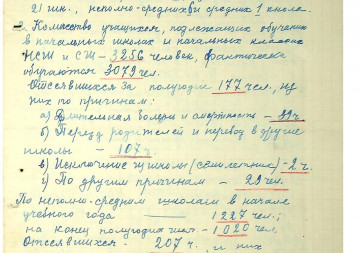 2) нач., неполно-средних и средних 1 школа.
2. Количество учащихся, подлежащих обучению
в начальных школах и начальных классах
НСШ и СШ – 3256 человек, фактически
обучают 3079 чел.
Отсеявшихся за полугодие 177 чел., из
них по причинам:
а) Длительная болезнь и смертность – 39 ч.
б) Переезд родителей и перевод в другие
школы – 107 ч.
в) Исключение из школы (семилетние) – 2 ч.
г) По другим причинам – 29 чел.
По неполно-средним школам в начале
учебного года – 1227 чел.;
на конец полугодия – 1020 чел.
Отсеявшихся – 207 ч. из них